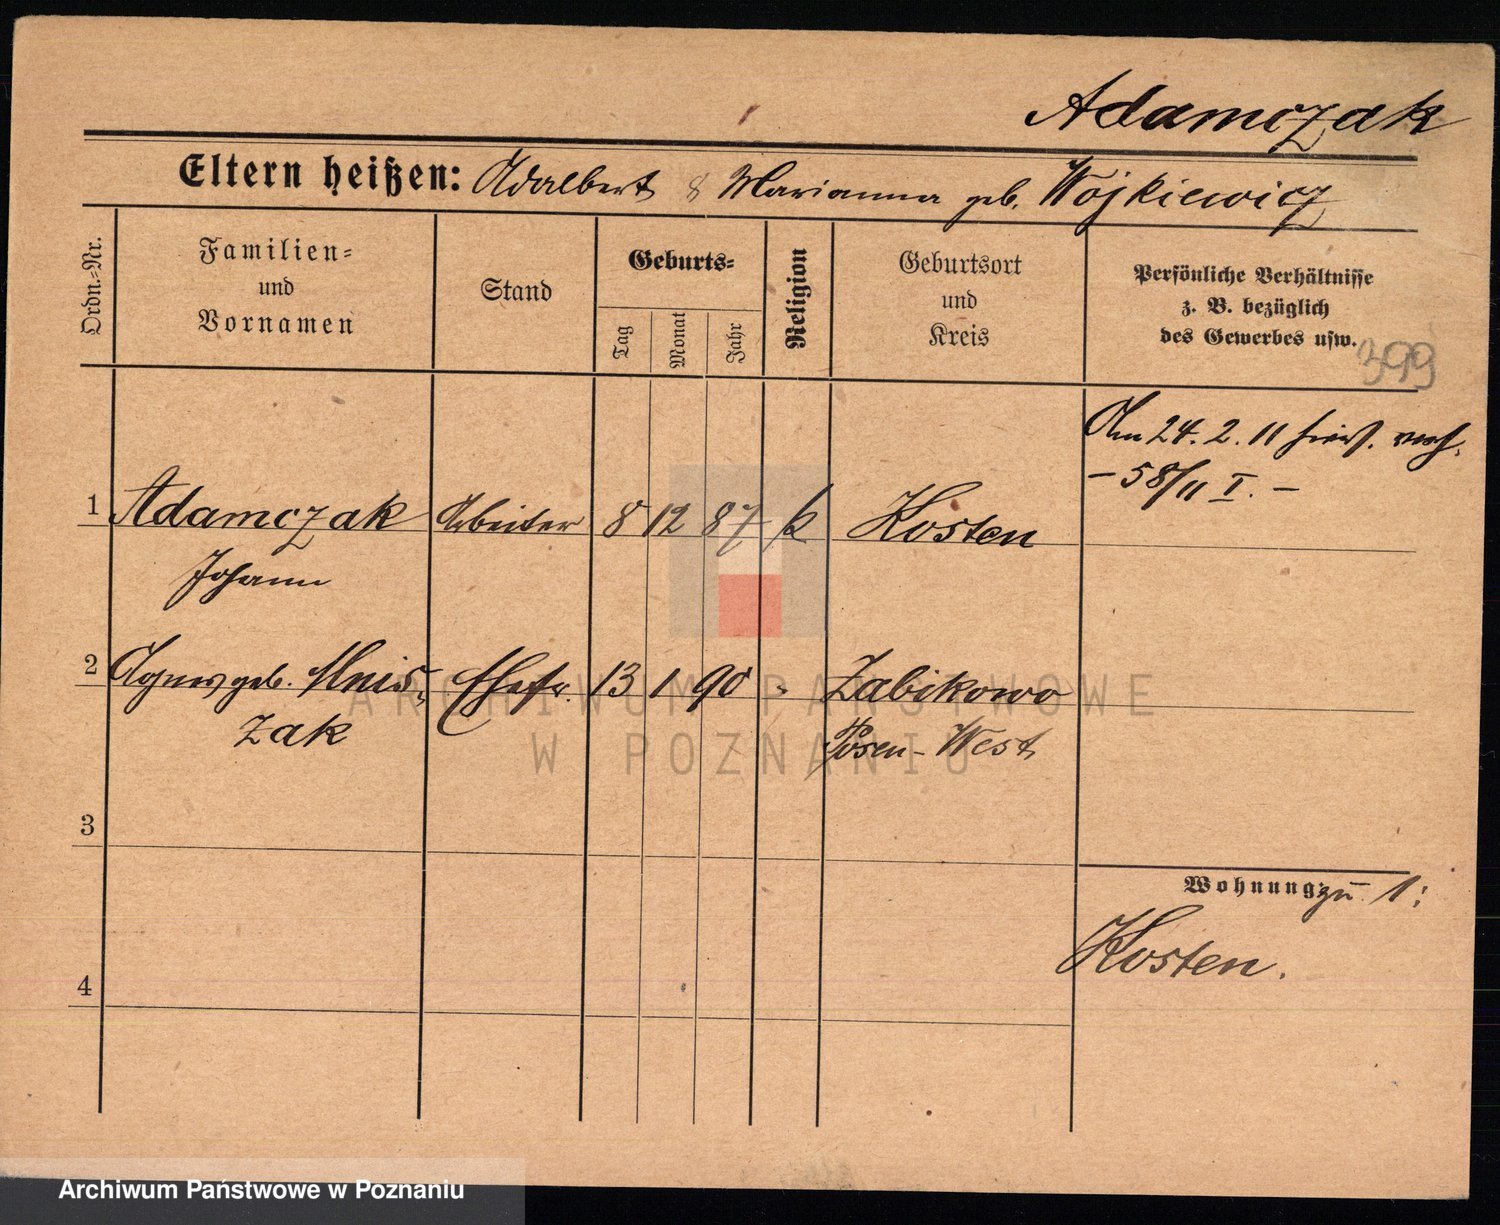 Adamczak
Eltern heißen: Adalbert & Marianna geb. Wojkiewicz
Ordn.-Nr.
Familien-
und
Vornamen
Stand
Geburts-
Tag
Monat
Jahr
Religion
Geburtsort
und
Kreis
Persönliche Verhältnisse
z. B. bezüglich
des Gewerbes usw.
399
Am 24. 2. 11
– 58/11 I. –
1 Adamczak Arbeiter 8 12 87 k Kosten
Johann
2 Agnes geb. Mnis- Ehefr. 13 1 90 " Zabikowo
zak
Posen-West
3
Wohnung zu 1:
Kosten.
4
ARCHIWUM PAŃSTWOWE
W POZNANIU
Archiwum Państwowe w Poznaniu